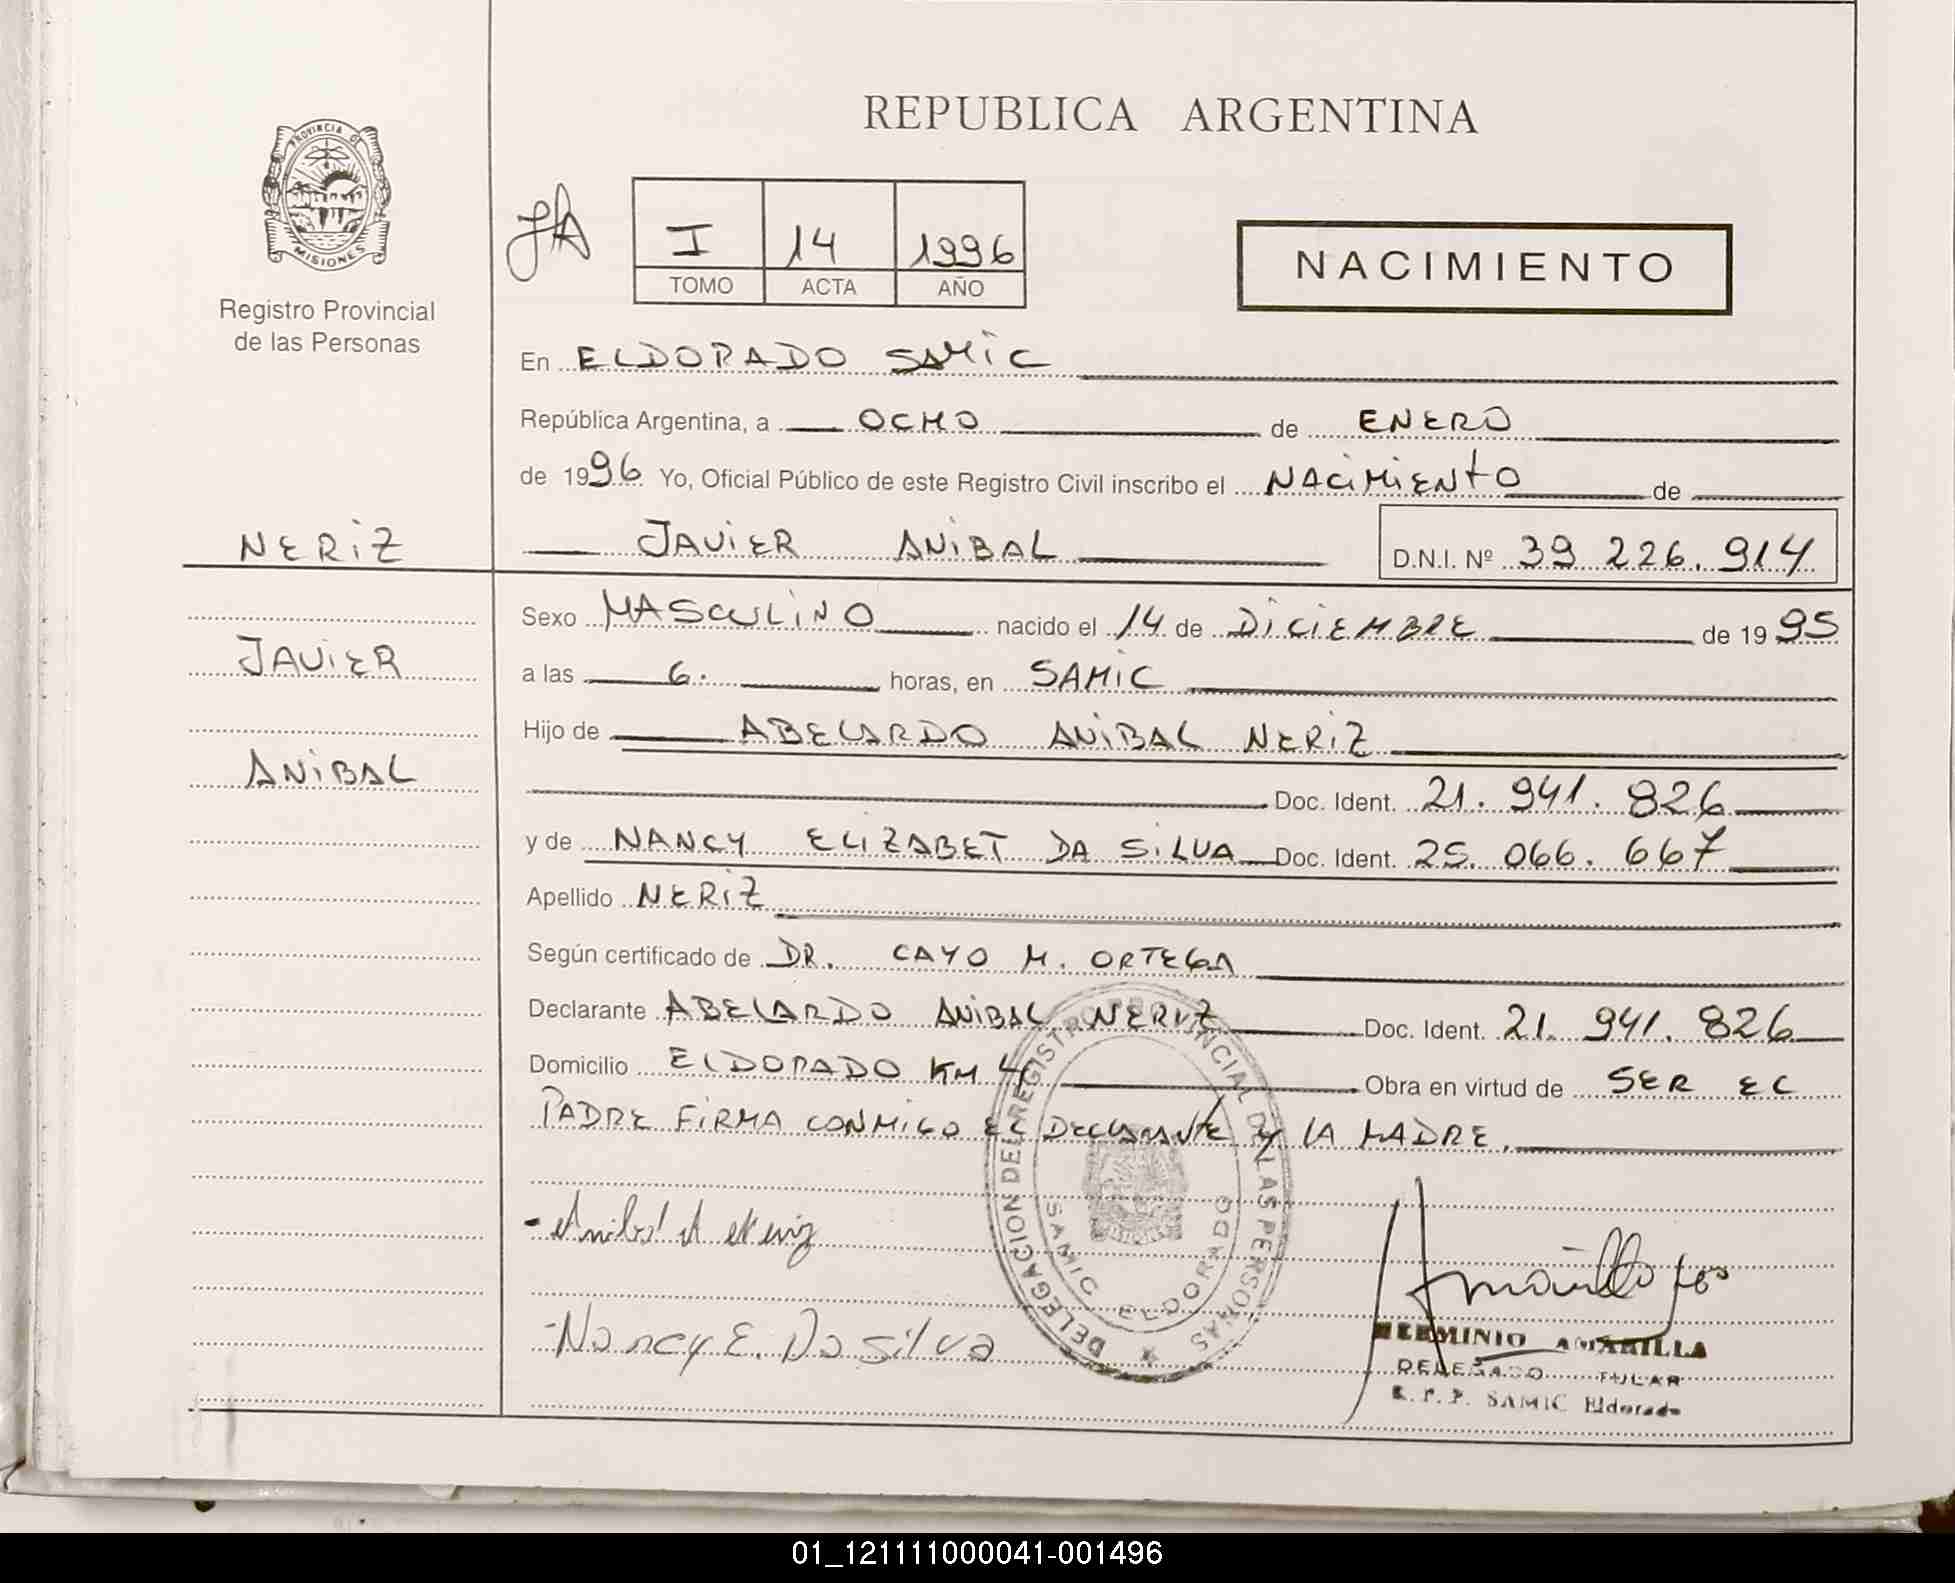 REPUBLICA ARGENTINA
PROVINCIA DE
MISIONES
Registro Provincial
de las Personas
I 14 1996
TOMO ACTA AÑO
NACIMIENTO
En ELDORADO SAMIC
República Argentina, a OCHO de ENERO
de 1996 Yo, Oficial Público de este Registro Civil inscribo el NACIMIENTO de
NERIZ
JAVIER ANIBAL D.N.I. Nº 39 226.914
Sexo MASCULINO nacido el 14 de DICIEMBRE de 1995
JAVIER
a las 6. horas, en SAMIC
Hijo de ABELARDO ANIBAL NERIZ
ANIBAL
Doc. Ident. 21.941.826
y de NANCY ELIZABET DA SILVA Doc. Ident. 25.066.667
Apellido NERIZ
Según certificado de DR. CAYO M. ORTEGA
Declarante ABELARDO ANIBAL NERIZ Doc. Ident. 21.941.826
Domicilio ELDORADO KM 4 Obra en virtud de SER EL
PADRE FIRMA CONMIGO EL DECLARANTE Y LA MADRE.
DELEGACION DEL REGISTRO PROVINCIAL DE LAS PERSONAS
SAMIC ELDORADO
Nancy E. Da silva
HERMINIO AMARILLA
DELEGADO TITULAR
R.P.P. SAMIC Eldorado
01_121111000041-001496